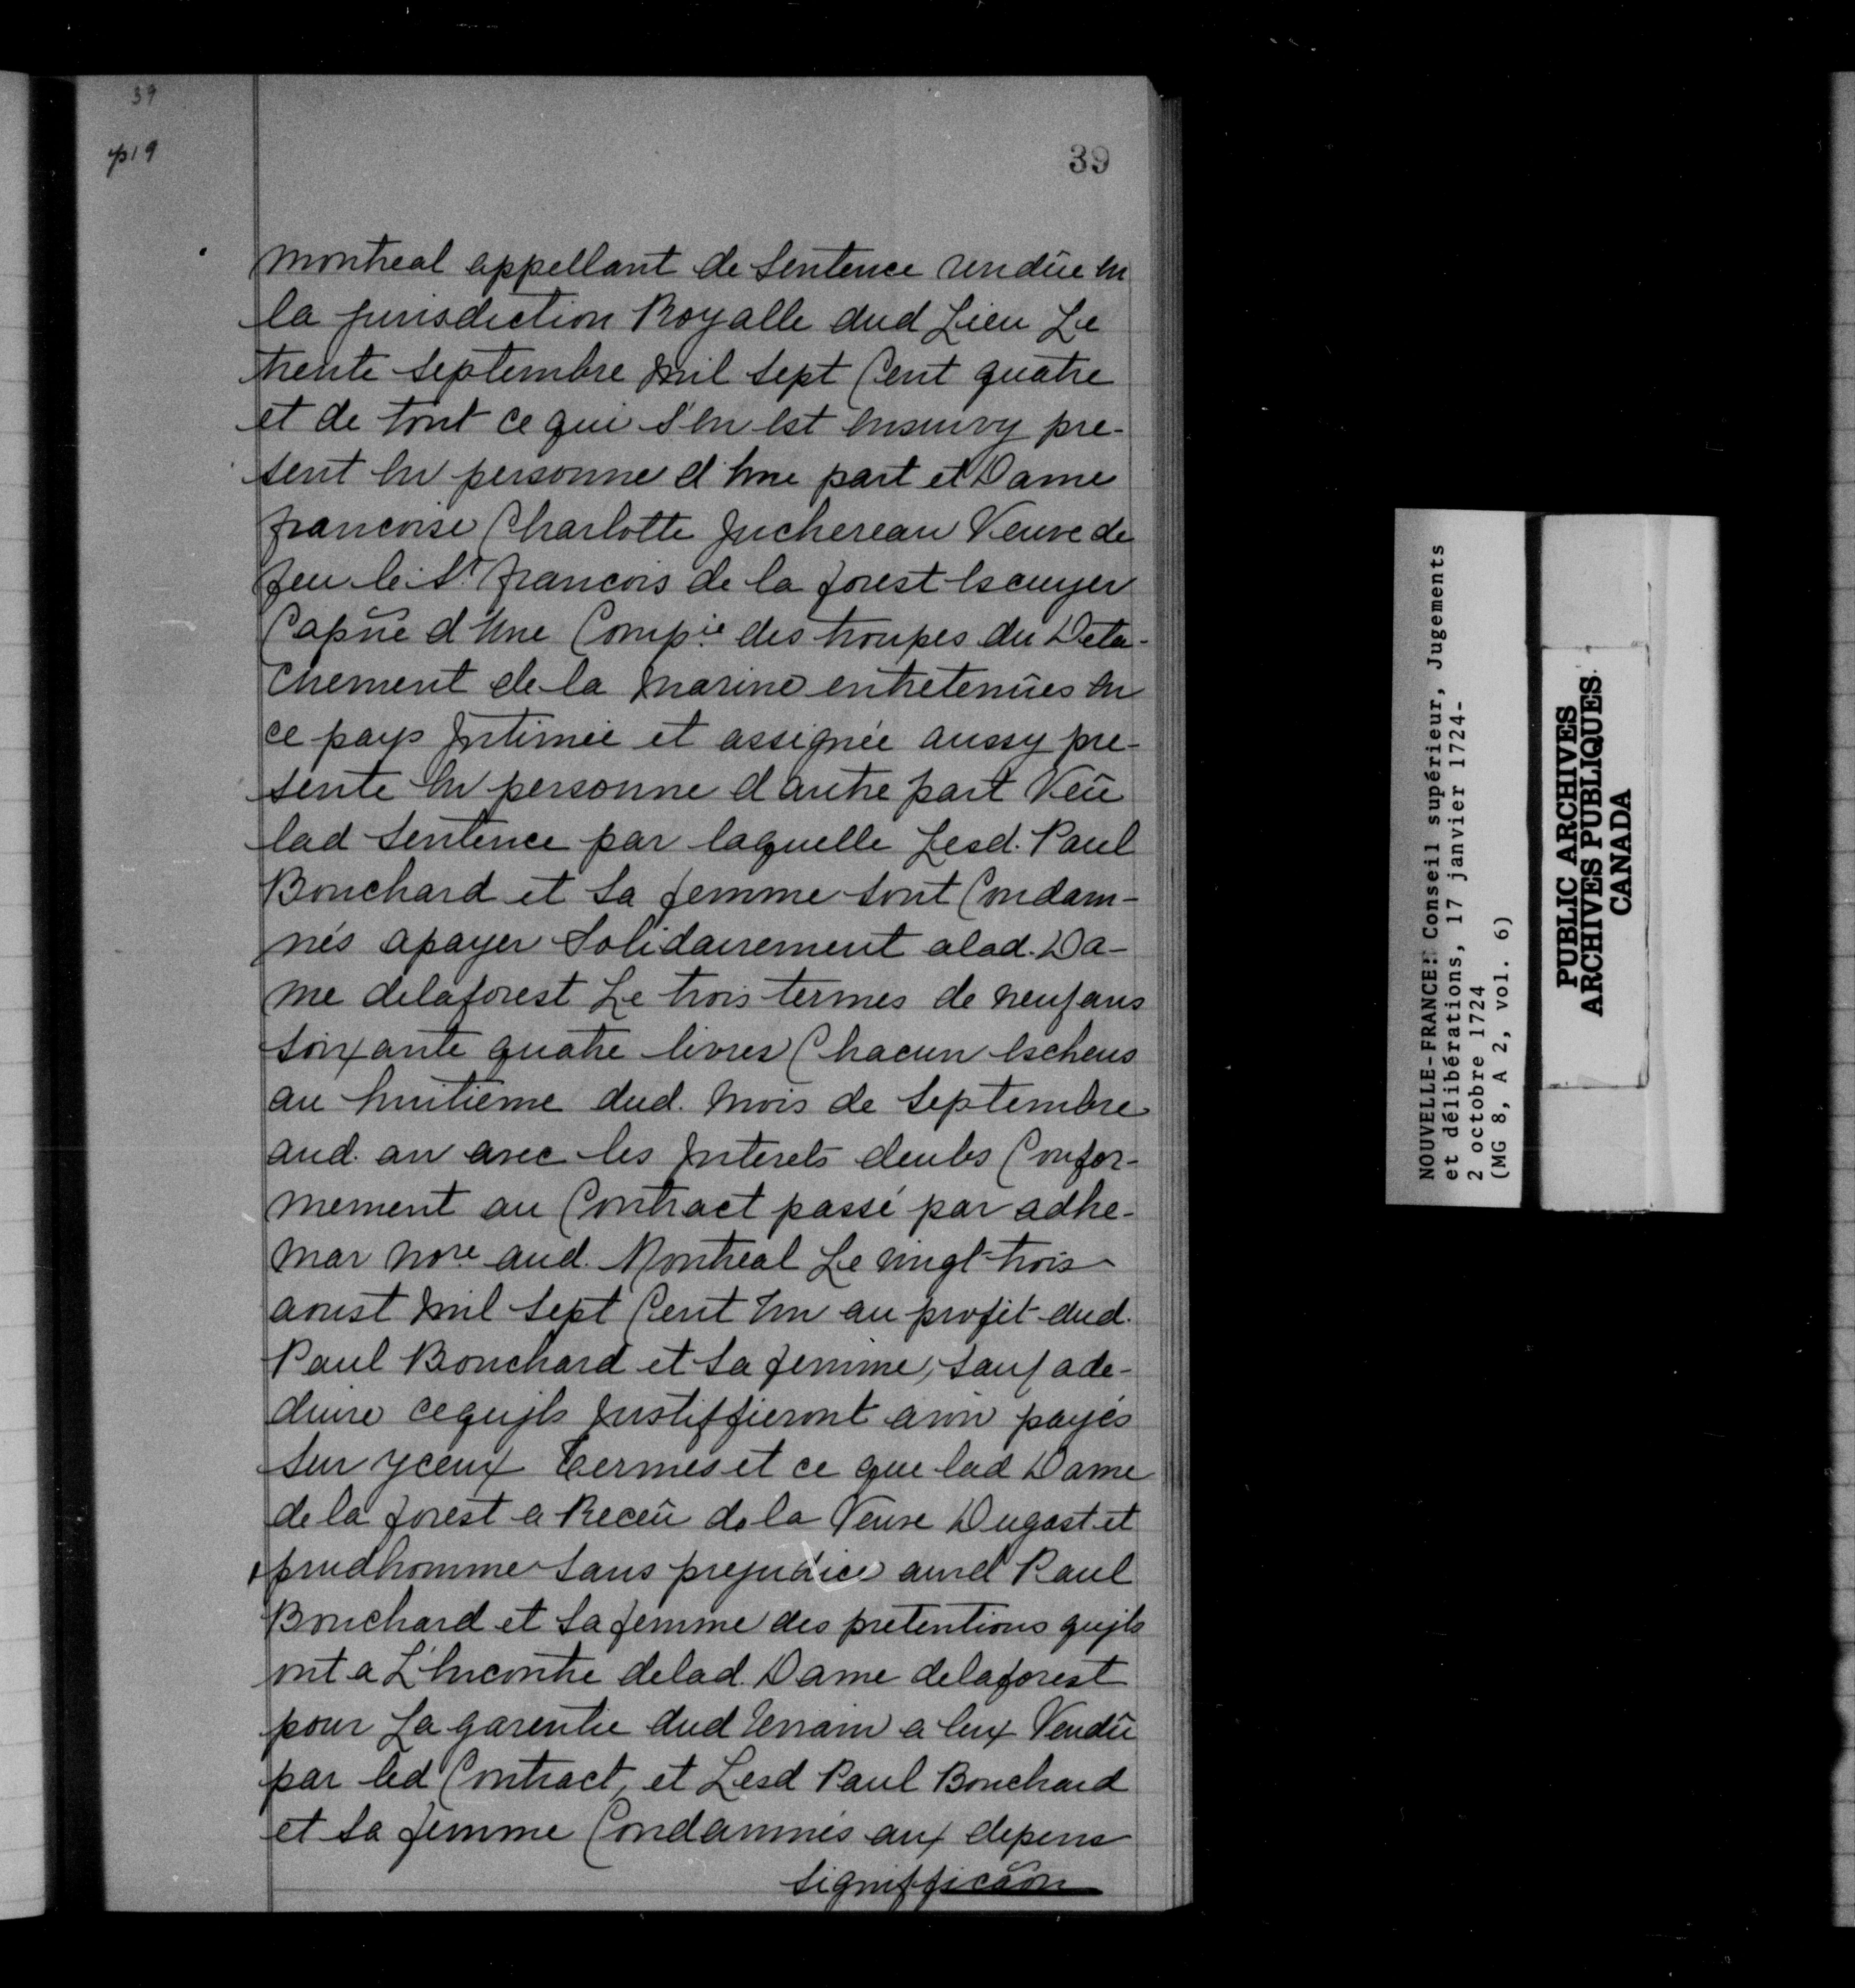 39
p19
39
montreal appellant de Sentence rendüe en
la jurisdiction Royalle dud Lieu Le
trente Septembre mil Sept Cent quatre
et de tout ce qui s'en est ensuivy pre-
sent en personne d'Une part et Dame
francoise Charlotte Juchereau Veuve de
feu le Sr. francois de la forest Escuyer
Capñe d'Une Compie des troupes du Deta-
chement de la marine entretenües en
ce pays Intimée et assignée aussy pre-
sente en personne d'autre part Veü
lad Sentence par laquelle Lesd. Paul
Bouchard et Sa femme sont Condam-
nés apayer Solidairement alad. Da-
me delaforest Le trois termes de neuf ans
Soixante quatre livres Chacun Escheus
au huitieme dud. Mois de Septembre
aud. an avec les Interets deubs Confor-
mement au Contract passé par adhe-
mar nore aud. Montreal Le vingt-trois
aoust mil Sept Cent Un au profit dud.
Paul Bouchard et Sa femme, sauf ade-
duire cequjls Justiffieront avoir payés
Sur yceux termes et ce que lad Dame
de la forest a Receü de la Veuve Dugast et
prudhomme sans prejudice aud Paul
Bouchard et Sa femme des pretentions qujls
ont a L'Encontre delad. Dame delaforest
pour La garentie dud terrain a Eux Vendu
par led Contract, et Lesd Paul Bouchard
et Sa femme Condamnés aux depens
Signifficãon
NOUVELLE-FRANCE: Conseil supérieur, Jugements
et délibérations, 17 janvier 1724-
2 octobre 1724
(MG 8, A 2, vol. 6)
PUBLIC ARCHIVES
ARCHIVES PUBLIQUES
CANADA